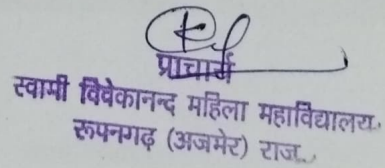 प्राचार्य
स्वामी विवेकानन्द महिला महाविद्यालय.
रूपनगढ़ (अजमेर) राज.